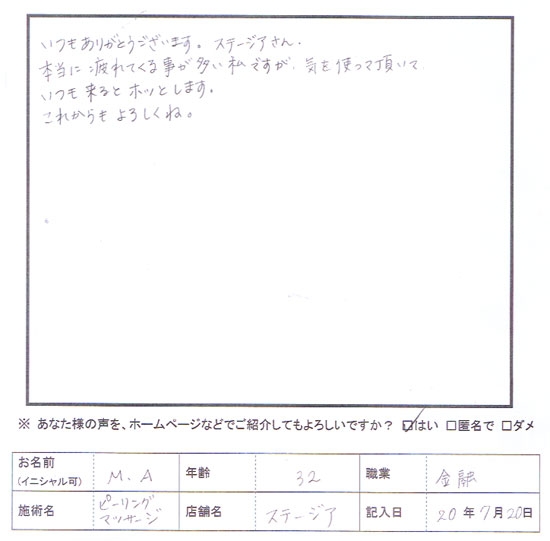 いつもありがとうございます。ステージアさん.
本当に疲れてくる事が多い私ですが、気を使って頂いて
いつも来るとホッとします。
これからもよろしくね。
※ あなた様の声を、ホームページなどでご紹介してもよろしいですか? ☑はい □匿名で □ダメ
お名前 (イニシャル可) M.A 年齢 32 職業 金融
施術名 ピーリング マッサージ 店舗名 ステージア 記入日 20年7月20日